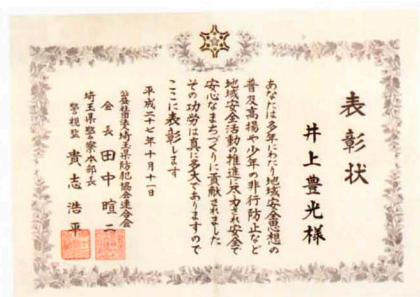 表彰状
井上豊光様
あなたは多年にわたり地域安全思想の
普及高揚や少年の非行防止など
地域安全活動の推進に尽力され安全で
安心なまちづくりに貢献されました
その功労は真に多大でありますので
ここに表彰します
平成二十七年十月十一日
公益社団法人埼玉県防犯協会連合会
会長 田中暄二
埼玉県警察本部長
警視監 貴志浩平